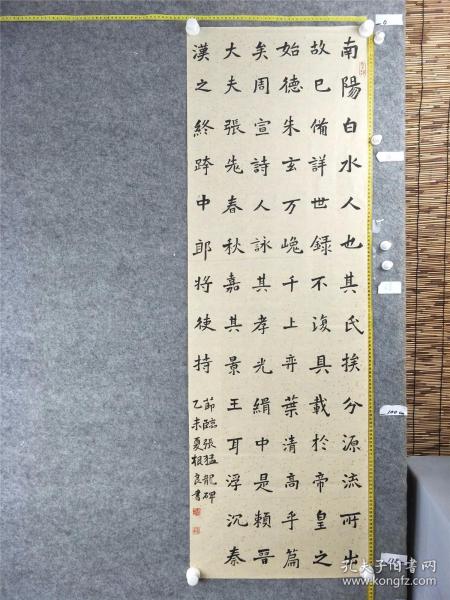 南陽白水人也其氏族分源流所出
故已備詳世録不復具載於帝皇之
始德朱玄万巉千上弈葉清高乎篇
矣周宣詩人詠其孝光緝中是賴晉
大夫張老春秋嘉其景王耳浮沉秦
漢之終跨中郎将使持
節臨張猛龍碑
乙未夏根良書
孔夫子旧书网
www.kongfz.com